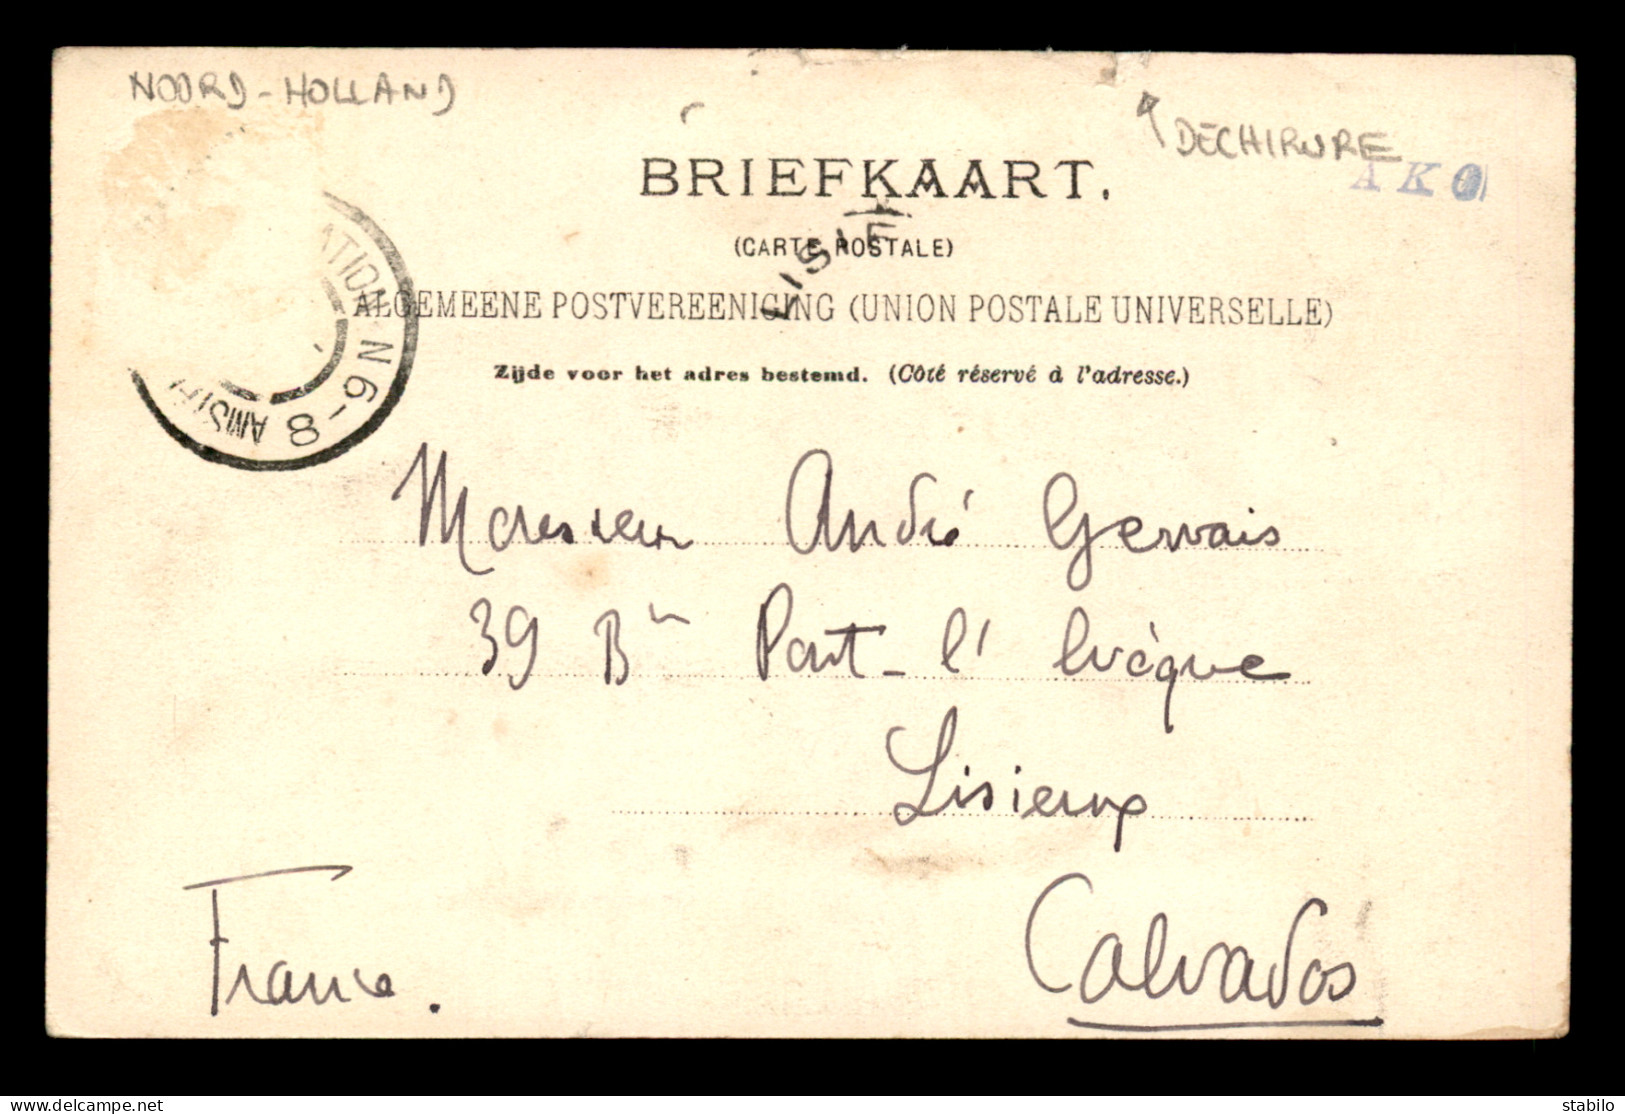 NOORD-HOLLAND
DECHIRURE
AKO
BRIEFKAART.
(CARTE POSTALE)
LISIE
ALGEMEENE POSTVEREENIGING (UNION POSTALE UNIVERSELLE)
Zijde voor het adres bestemd. (Côté réservé à l'adresse.)
N 6-8
Monsieur André Gervais
39 Bn Pont-l'Evèque
Lisieux
Calvados
France.
stabilo
delcampe.net